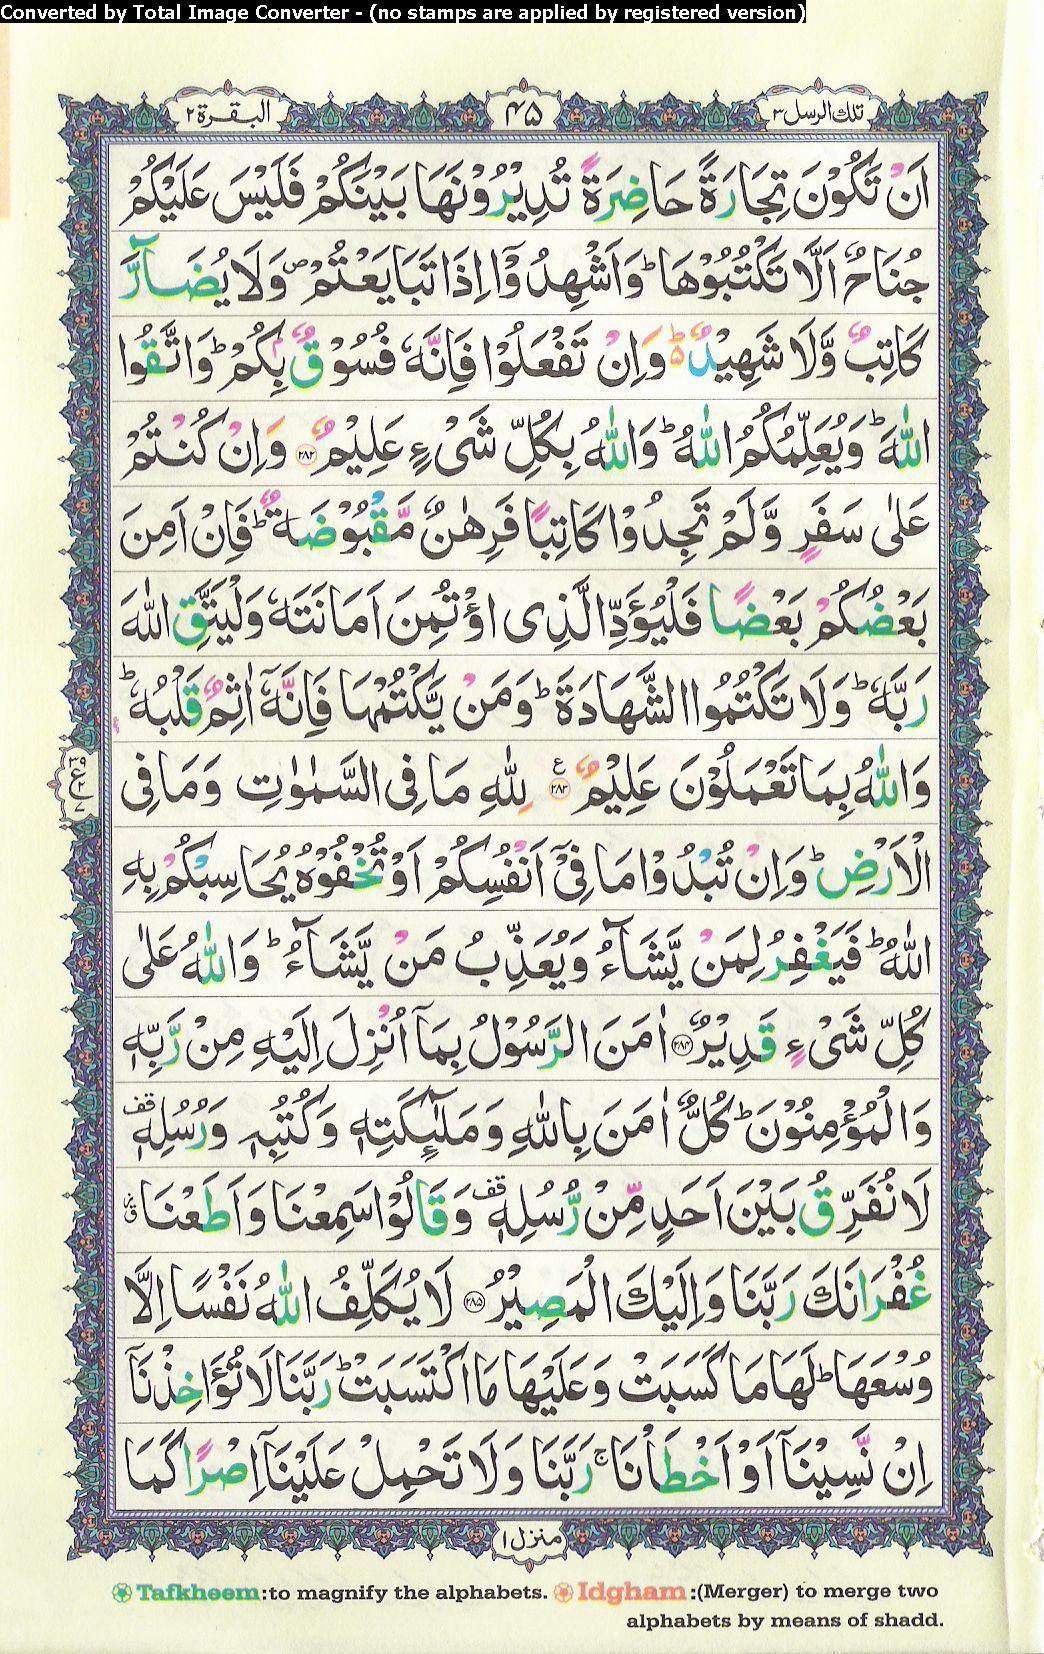 Converted by Total Image Converter - (no stamps are applied by registered version)
تلك الرسل ٣
۴۵
البقرة ٢
اَنْ تَكُوْنَ تِجَارَةً حَاضِرَةً تُدِيْرُوْنَهَا بَيْنَكُمْ فَلَيْسَ عَلَيْكُمْ
جُنَاحٌ اَلَّا تَكْتُبُوْهَا ؕ وَاَشْهِدُوْۤا اِذَا تَبَايَعْتُمْ ۪ وَلَا يُضَآرَّ
كَاتِبٌ وَّلَا شَهِيْدٌ ؕ۬ وَاِنْ تَفْعَلُوْا فَاِنَّهٗ فُسُوْقٌۢ بِكُمْ ؕ وَاتَّقُوا
اللّٰهَ ؕ وَيُعَلِّمُكُمُ اللّٰهُ ؕ وَاللّٰهُ بِكُلِّ شَىْءٍ عَلِيْمٌ ﴿۲۸۲﴾ وَاِنْ كُنْتُمْ
عَلٰى سَفَرٍ وَّلَمْ تَجِدُوْا كَاتِبًا فَرِهٰنٌ مَّقْبُوْضَةٌ ؕ فَاِنْ اَمِنَ
بَعْضُكُمْ بَعْضًا فَلْيُؤَدِّ الَّذِى اؤْتُمِنَ اَمَانَتَهٗ وَلْيَتَّقِ اللّٰهَ
رَبَّهٗ ؕ وَلَا تَكْتُمُوا الشَّهَادَةَ ؕ وَمَنْ يَّكْتُمْهَا فَاِنَّهٗۤ اٰثِمٌ قَلْبُهٗ ؕ
وَاللّٰهُ بِمَا تَعْمَلُوْنَ عَلِيْمٌ ﴿۲۸۳﴾ ع لِلّٰهِ مَا فِى السَّمٰوٰتِ وَمَا فِى
الْاَرْضِ ؕ وَاِنْ تُبْدُوْا مَا فِىْۤ اَنْفُسِكُمْ اَوْ تُخْفُوْهُ يُحَاسِبْكُمْ بِهِ
اللّٰهُ ؕ فَيَغْفِرُ لِمَنْ يَّشَآءُ وَيُعَذِّبُ مَنْ يَّشَآءُ ؕ وَاللّٰهُ عَلٰى
كُلِّ شَىْءٍ قَدِيْرٌ ﴿۲۸۴﴾ اٰمَنَ الرَّسُوْلُ بِمَاۤ اُنْزِلَ اِلَيْهِ مِنْ رَّبِّهٖ
وَالْمُؤْمِنُوْنَ ؕ كُلٌّ اٰمَنَ بِاللّٰهِ وَمَلٰٓئِكَتِهٖ وَكُتُبِهٖ وَرُسُلِهٖ قف
لَا نُفَرِّقُ بَيْنَ اَحَدٍ مِّنْ رُّسُلِهٖ قف وَقَالُوْا سَمِعْنَا وَاَطَعْنَا
غُفْرَانَكَ رَبَّنَا وَاِلَيْكَ الْمَصِيْرُ ﴿۲۸۵﴾ لَا يُكَلِّفُ اللّٰهُ نَفْسًا اِلَّا
وُسْعَهَا ؕ لَهَا مَا كَسَبَتْ وَعَلَيْهَا مَا اكْتَسَبَتْ ؕ رَبَّنَا لَا تُؤَاخِذْنَاۤ
اِنْ نَّسِيْنَاۤ اَوْ اَخْطَاْنَا ۚ رَبَّنَا وَلَا تَحْمِلْ عَلَيْنَاۤ اِصْرًا كَمَا
منزل ١
Tafkheem:to magnify the alphabets. Idgham:(Merger) to merge two
alphabets by means of shadd.